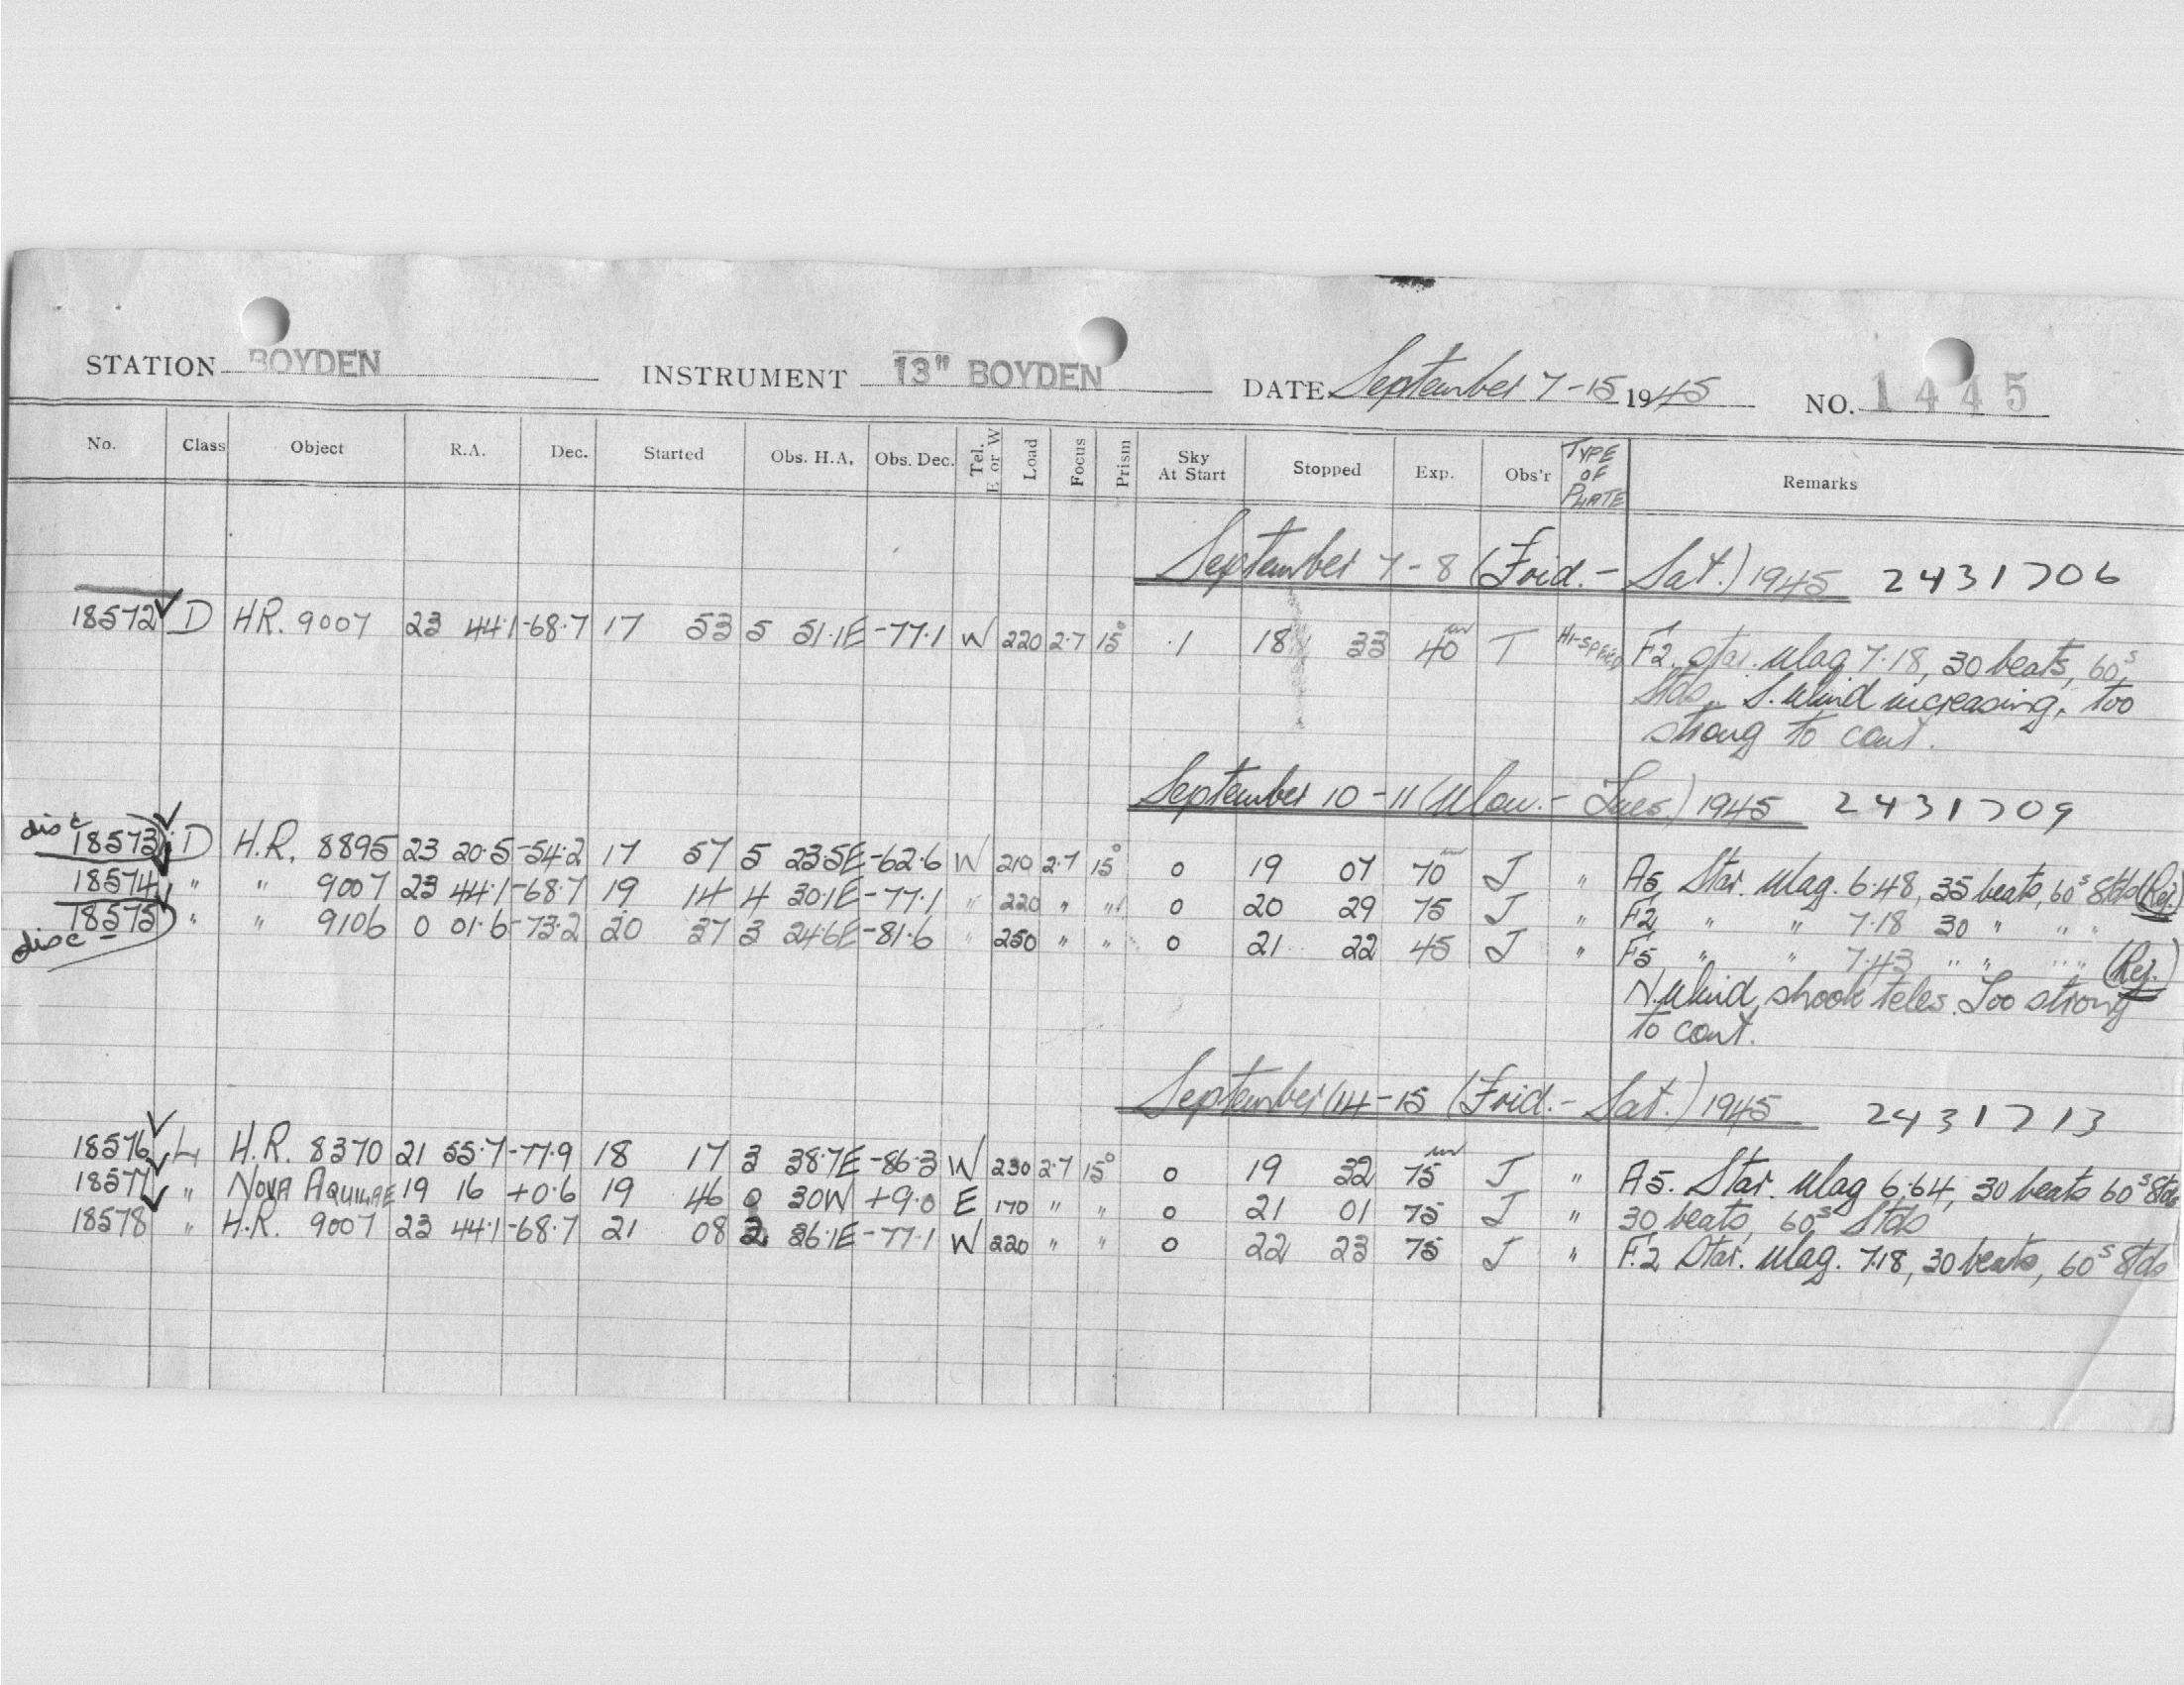 STATION BOYDEN INSTRUMENT 13" BOYDEN DATE September 7-15 1945 NO. 1445
No. Class Object R.A. Dec. Started Obs. H.A. Obs. Dec. Tel. E or W Load Focus Prism Sky At Start Stopped Exp. Obs'r TYPE OF PLATE Remarks
September 7-8 (Frid.- Sat.) 1945 2431706
18572 ✓ D HR. 9007 23 44.1 -68.7 17 53 5 51.1E -77.1 W 220 2.7 15° .1 18 33 40m T HI-SPEED F2. star. Mag 7.18, 30 beats, 60s
Stds. S. Wind increasing, too
strong to cont.
September 10-11 (Mon.- Tues.) 1945 2431709
disc 18573 ✓ D H.R. 8895 23 20.5 -54.2 17 57 5 23.5E -62.6 W 210 2.7 15° 0 19 07 70m J " A5, Star. Mag. 6.48, 35 beats, 60s Stds (Rej.)
18574 ✓ " " 9007 23 44.1 -68.7 19 14 4 30.1E -77.1 " 220 " " 0 20 29 75 J " F2, " " 7.18 30 " " "
18575 " " 9106 0 01.6 -73.2 20 37 3 24.6E -81.6 " 250 " " 0 21 22 45 J " F5 " " 7.43 " " " " (Rej.)
disc -
N. Wind, shook teles. Too strong
to cont.
September 14-15 (Frid.- Sat.) 1945 2431713
18576 ✓ L H.R. 8370 21 55.7 -77.9 18 17 3 38.7E -86.3 W 230 2.7 15° 0 19 32 75m J " A5. Star. Mag 6.64, 30 beats 60s Stds
18577 ✓ " NOVA AQUILAE 19 16 +0.6 19 46 0 30W +9.0 E 170 " " 0 21 01 75 J " 30 beats, 60s Stds
18578 ✓ " H.R. 9007 23 44.1 -68.7 21 08 2 36.1E -77.1 W 220 " " 0 22 23 75 J " F.2 Star. Mag. 7.18, 30 beats, 60s Stds